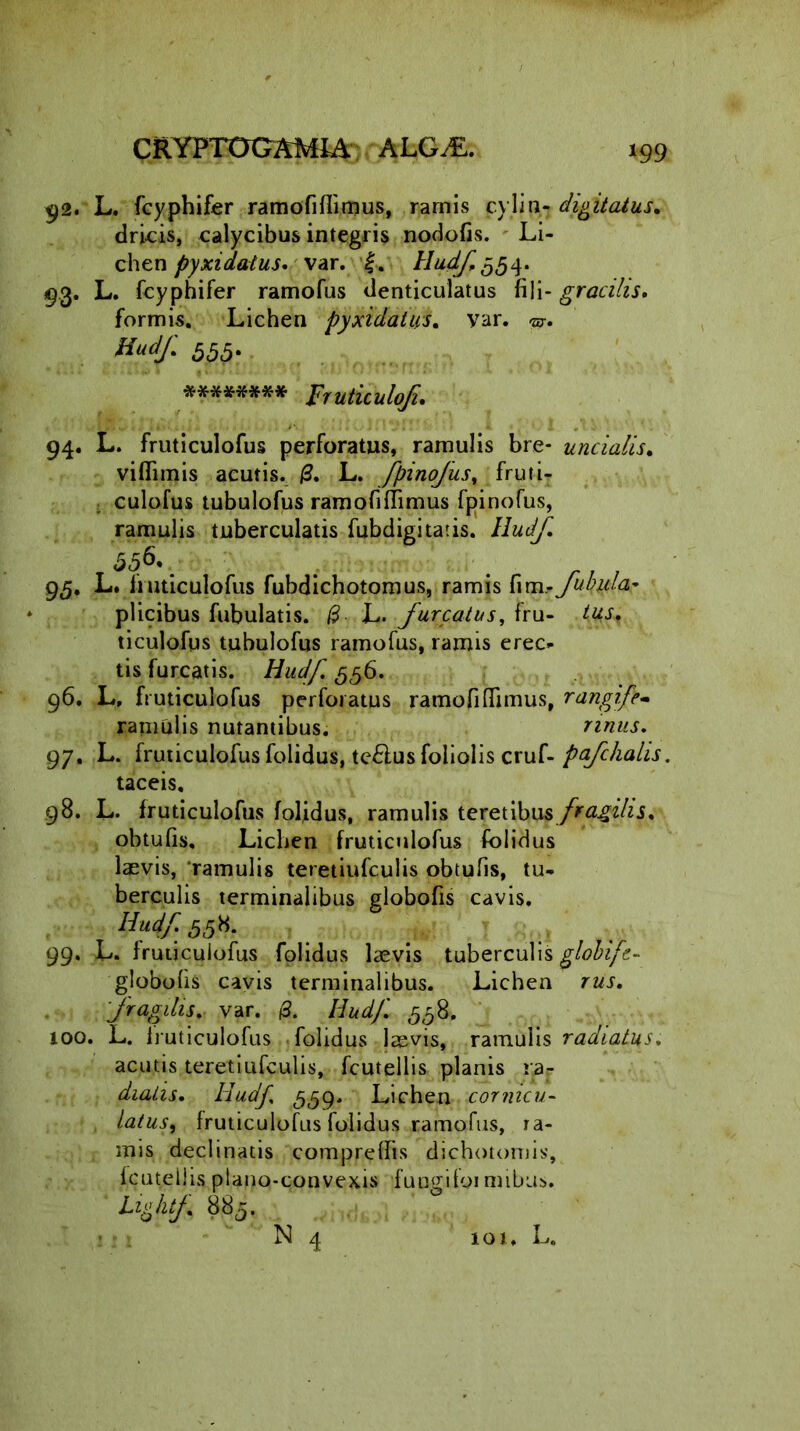 CRYPTOGAMIA ALGÆ. 199
92. L. ſcyphifer ramoſiſſimus, ramis cylin- digitatus.
dricis, calycibus integris nodoſis. Li-
chen pyxidatus. var. ξ. Hudſ. 554.
93. L. ſcyphifer ramoſus denticulatus fili- gracilis.
formis. Lichen pyxidatus. var. ϖ.
Hudſ. 555.
******** Fruticuloſi.
94. L. fruticuloſus perforatus, ramulis bre- uncialis.
viſſimis acutis. β. L. ſpinoſus, fruti-
culoſus tubuloſus ramoſiſſimus ſpinoſus,
ramulis tuberculatis ſubdigitatis. Hudſ.
556.
95. L. fruticuloſus ſubdichotomus, ramis ſim- ſubula-
plicibus ſubulatis. β L. furcatus, fru- tus.
ticuloſus tubuloſus ramoſus, ramis erec-
tis furcatis. Hudſ. 556.
96. L. fruticuloſus perforatus ramoſiſſimus, rangife-
ramulis nutantibus. rinus.
97. L. fruticuloſus ſolidus, tectus foliolis cruſ- paſchalis.
taceis.
98. L. fruticuloſus ſolidus, ramulis teretibus fragilis.
obtuſis. Lichen fruticuloſus ſolidus
lævis, ramulis teretiuſculis obtuſis, tu-
berculis terminalibus globoſis cavis.
Hudſ. 558.
99. L. fruticuloſus ſolidus lævis tuberculis globife-
globoſis cavis terminalibus. Lichen rus.
fragilis. var. β. Hudſ. 558.
100. L. fruticuloſus ſolidus lævis, ramulis radiatus.
acutis teretiuſculis, ſcutellis planis ra-
diatis. Hudſ. 559. Lichen cornicu-
latus, fruticuloſus ſolidus ramoſus, ra-
mis declinatis compreſſis dichotomis,
ſcutellis plano-convexis fungiformibus.
Lightf. 885.
N 4 101. L.